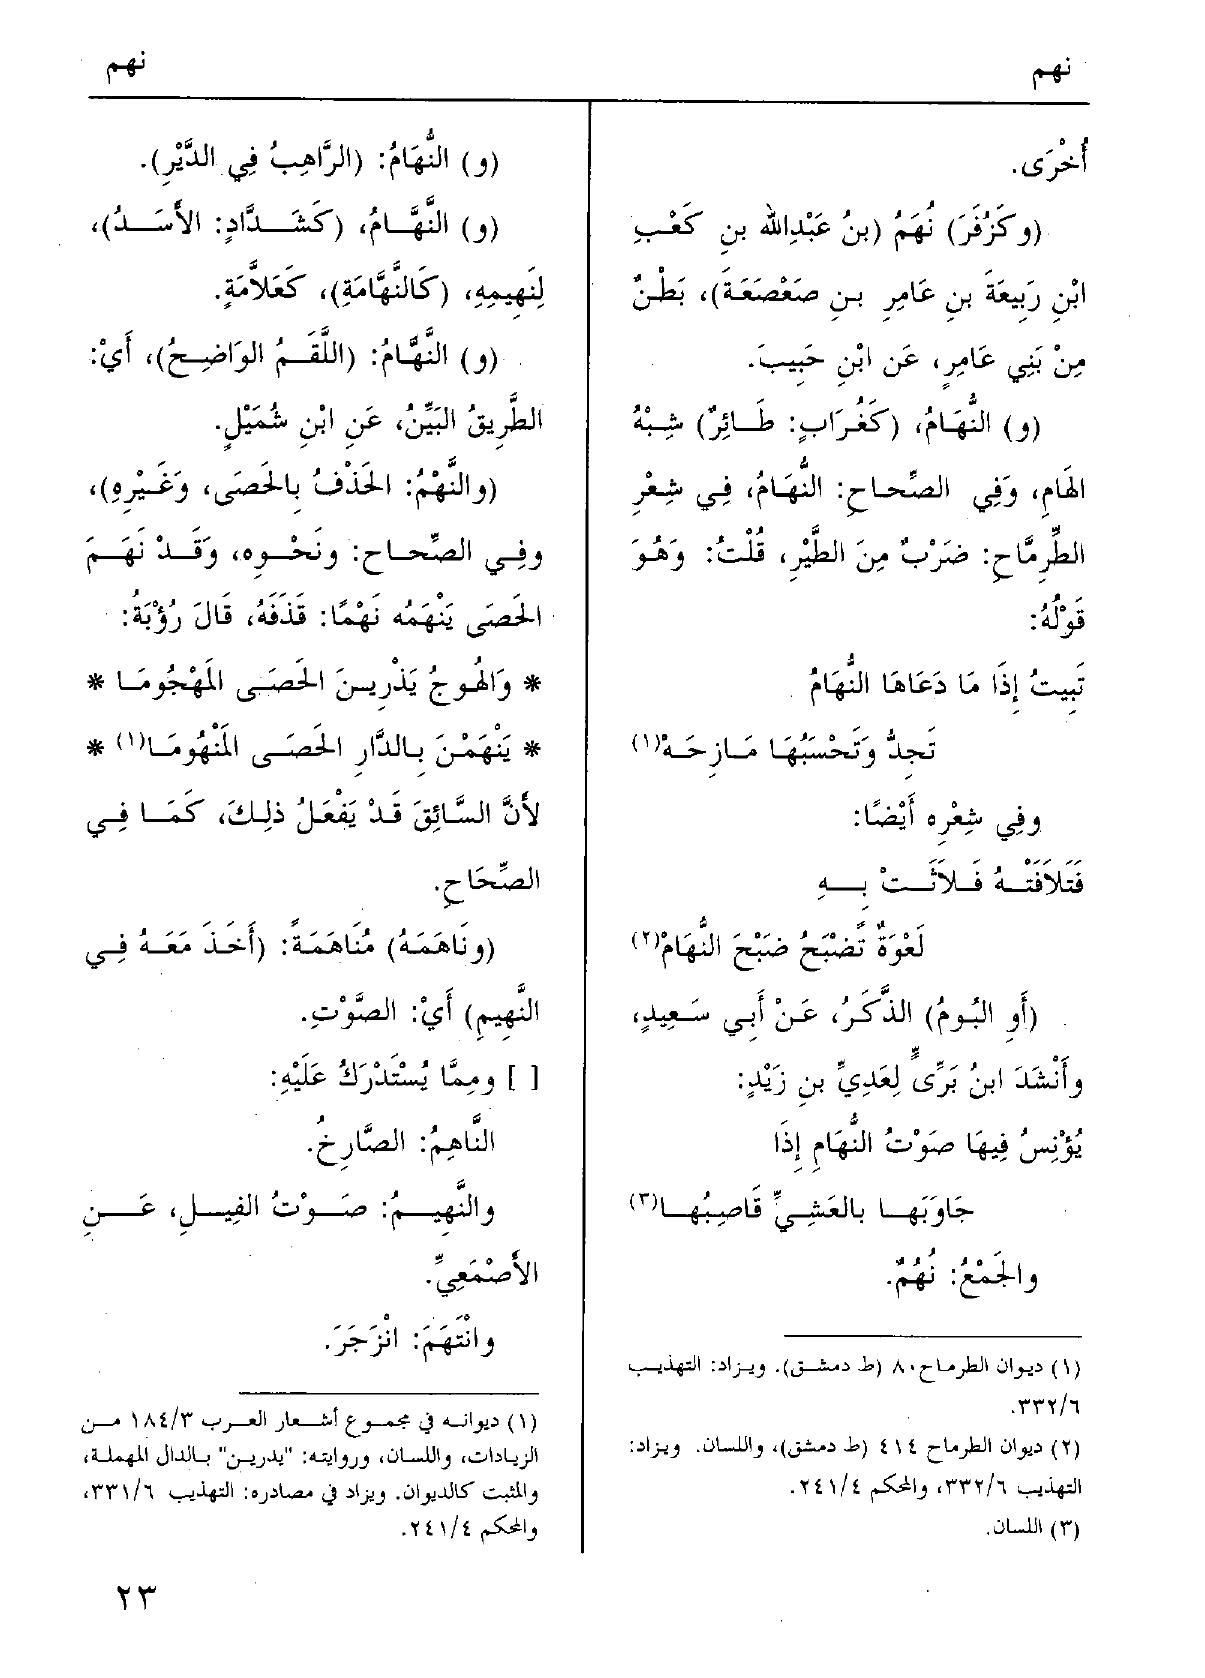 نهم
نهم
أُخْرَى.
(وكَزُفَرَ) نُهَمُ (بنُ عَبْدِالله بنِ كَعْبِ
ابْنِ رَبِيعَةَ بنِ عَامِرِ بنِ صَعْصَعَةَ)، بَطْنٌ
مِنْ بَنِي عَامِرٍ، عَن ابْنِ حَبِيبَ.
(و) النُّهَامُ، (كَغُرَابٍ: طَائِرٌ) شِبْهُ
الهَامِ، وَفِي الصِّحاحِ: النُّهَامُ، فِي شِعْرِ
الطِّرِمَّاحِ: ضَرْبٌ مِنَ الطَّيْرِ، قُلْتُ: وَهُوَ
قَوْلُهُ:
تَبِيتُ إِذَا مَا دَعَاهَا النُّهَامُ
تَجِدُّ وَتَحْسَبُهَا مَازِحَهْ(١)
وفِي شِعْرِه أَيْضًا:
فَتَلَاقَتْهُ فَلَاثَتْ بِهِ
لَعْوَةٌ تَُضْبَحُ ضَبْحَ النُّهَامْ(٢)
(أَو البُومُ) الذَّكَرُ، عَنْ أَبِي سَعِيدٍ،
وأَنْشَدَ ابنُ بَرِّىٍّ لِعَدِيِّ بنِ زَيْدٍ:
يُؤْنِسُ فِيهَا صَوْتُ النُّهَامِ إِذَا
جَاوَبَهَا بالعَشِيِّ قَاصِبُهَا(٣)
والجَمْعُ: نُهُمٌ.
(١) ديوان الطرماح ٨٠ (ط دمشق). ويزاد: التهذيب
٣٣٢/٦.
(٢) ديوان الطرماح ٤١٤ (ط دمشق)، واللسان. ويزاد:
التهذيب ٣٣٢/٦، والمحكم ٢٤١/٤.
(٣) اللسان.
(و) النُّهَامُ: (الرَّاهِبُ فِي الدَّيْرِ).
(و) النَّهَّامُ، (كَشَدَّادٍ: الأَسَدُ)،
لِنَهِيمِهِ، (كَالنَّهَّامَةِ)، كَعَلَّامَةٍ.
(و) النَّهَّامُ: (اللَّقَمُ الوَاضِحُ)، أَيْ:
الطَّرِيقُ البَيِّنُ، عَنِ ابْنِ شُمَيْلٍ.
(والنَّهْمُ: الحَذْفُ بِالحَصَى، وَغَيْرِهِ)،
وفِي الصِّحاح: ونَحْوِه، وَقَدْ نَهَمَ
الحَصَى يَنْهَمُه نَهْمًا: قَذَفَهُ، قَالَ رُؤْبَةُ:
* وَالهُوجُ يَذْرِينَ الحَصَى المَهْجُومَا *
* يَنْهَمْنَ بِالدَّارِ الحَصَى المَنْهُومَا(١) *
لأَنَّ السَّائِقَ قَدْ يَفْعَلُ ذلِكَ، كَمَا فِي
الصِّحَاحِ.
(ونَاهَمَهُ) مُنَاهَمَةً: (أَخَذَ مَعَهُ فِي
النَّهِيمِ) أَيْ: الصَّوْتِ.
[ ] ومِمَّا يُسْتَدْرَكُ عَلَيْهِ:
النَّاهِمُ: الصَّارِخُ.
والنَّهِيمُ: صَوْتُ الفِيلِ، عَنِ
الأَصْمَعِيِّ.
وانْتَهَمَ: انْزَجَرَ.
(١) ديوانه في مجموع أشعار العرب ١٨٤/٣ من
الزيادات، واللسان، وروايته: "يدرين" بالدال المهملة،
والمثبت كالديوان. ويزاد في مصادره: التهذيب ٣٣١/٦،
والمحكم ٢٤١/٤.
٢٣